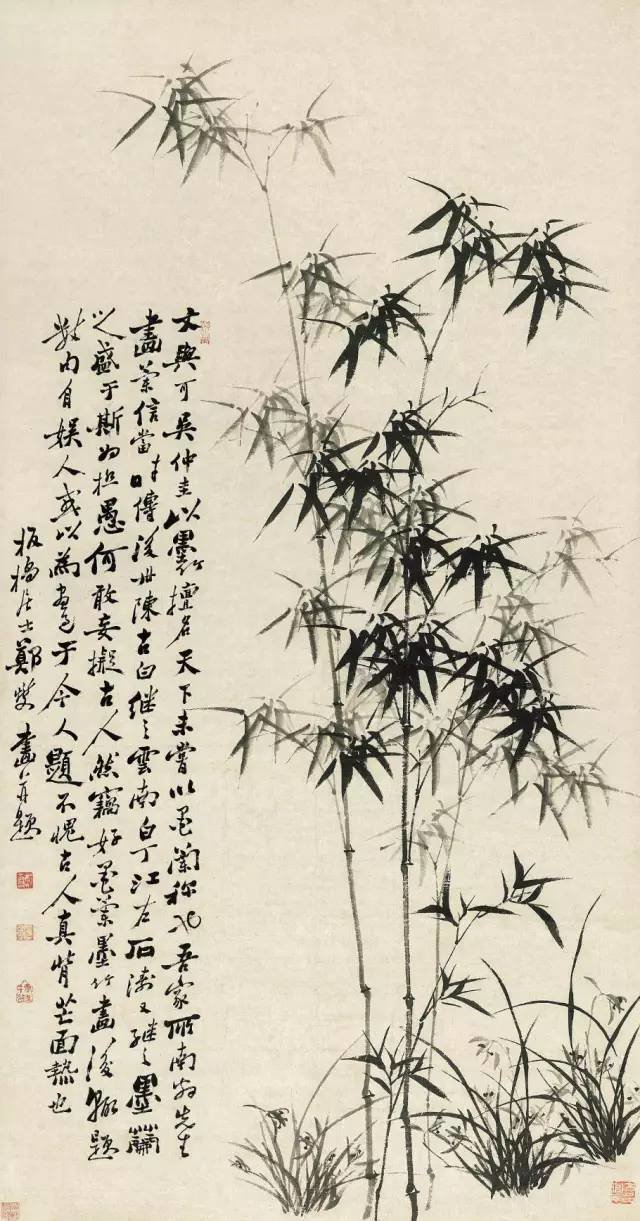 文與可吳仲圭以墨竹擅名天下未嘗以墨蘭称也吾家所南翁先生
畫蘭信當时傳後世陳古白继之雲南白丁江右石濤又继之墨蘭
之盛于斯为极愚何敢妄擬古人然竊好墨蘭墨竹畫後輒題
數内自娱人或以為畫過于今人題不愧古人真背芒面熱也
板橋居士鄭燮畫并題